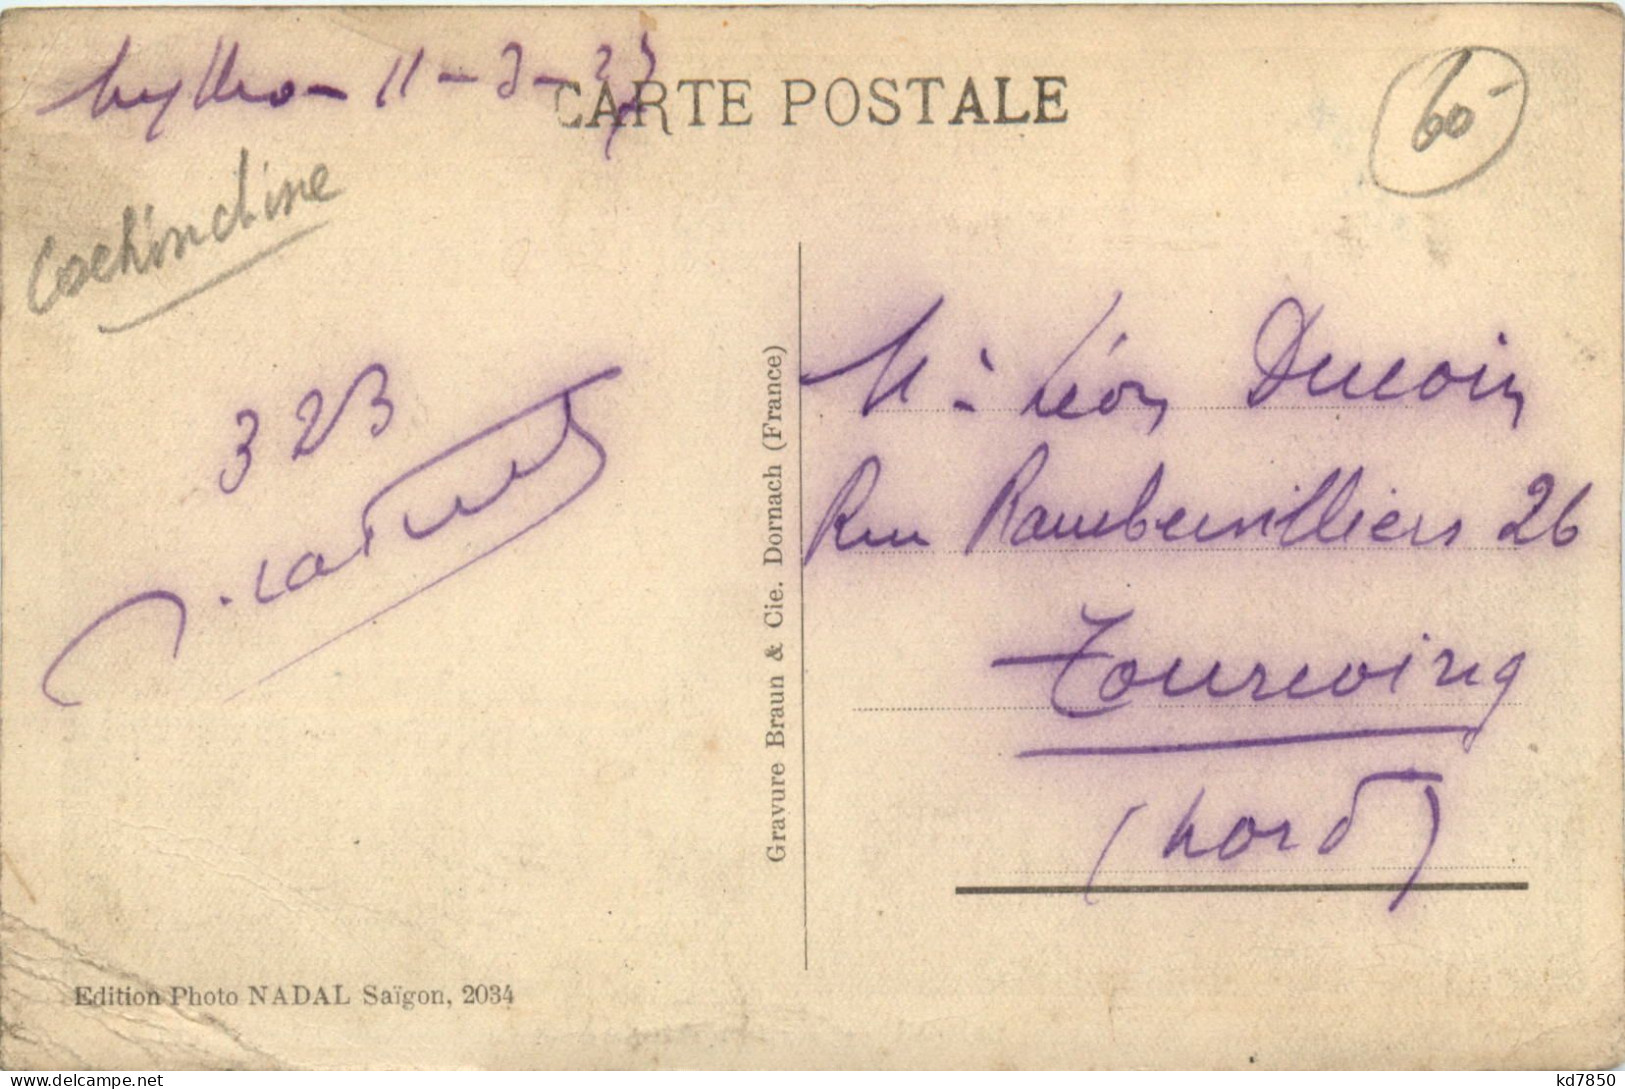 Mytho - 11 - 3 -
CARTE POSTALE
60-
Cochinchine
Mr Léon Ducoin
323
Rue Rambervilliers 26
Tourcoing
(Nord)
Gravure Braun & Cie. Dornach (France)
Edition Photo NADAL Saïgon, 2034
kd7850